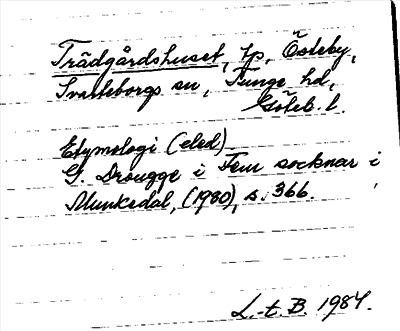 Trädgårdshuset, lp, Österby,
Svarteborgs sn, Tunge hd,
Göteb. l.
Etymologi (eled)
G. Drougge i Fem socknar i
Munkedal, (1980), s. 366.
L.-t. B. 1984.